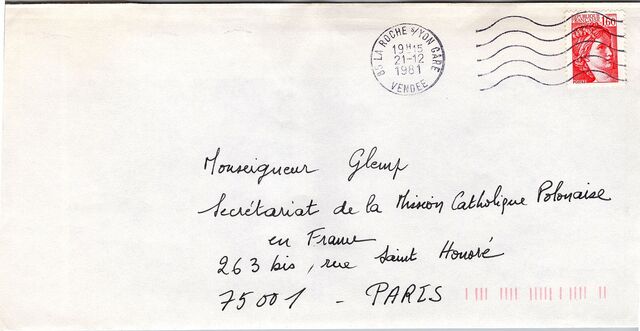 85 LA ROCHE S/YON GARE
19H15
21-12
1981
VENDEE
1,60
Monseigneur Glemp
Secrétariat de la Mission Catholique Polonaise
en France
263 bis, rue Saint Honoré
75001 - PARIS